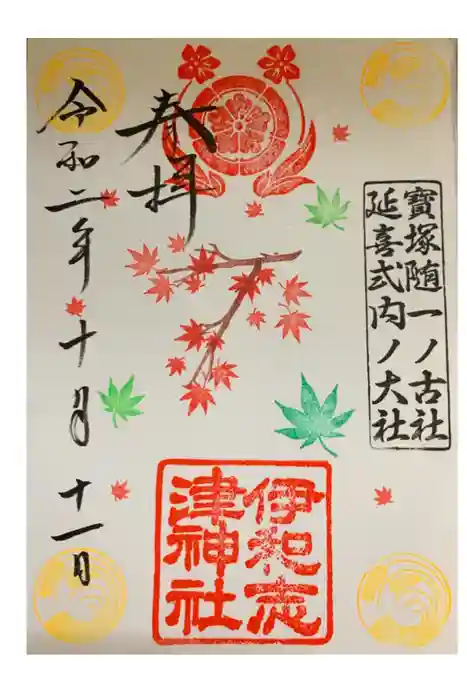 寶塚随一ノ古社
延喜式内ノ大社
奉拝
伊和志
津神社
令和二年十月十一日